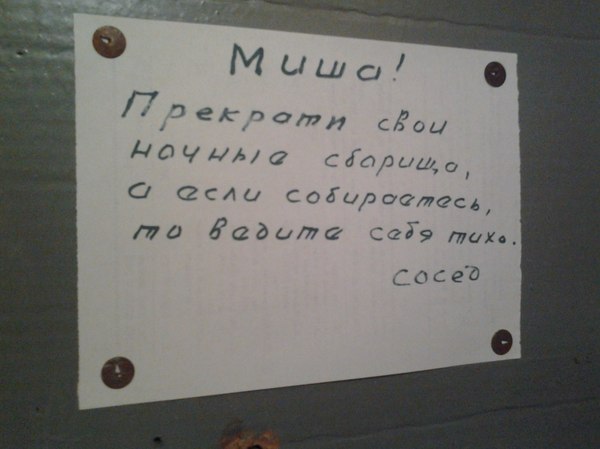 Миша!
Прекрати свои
ночные сборища,
а если собираетесь,
то ведите себя тихо.
сосед